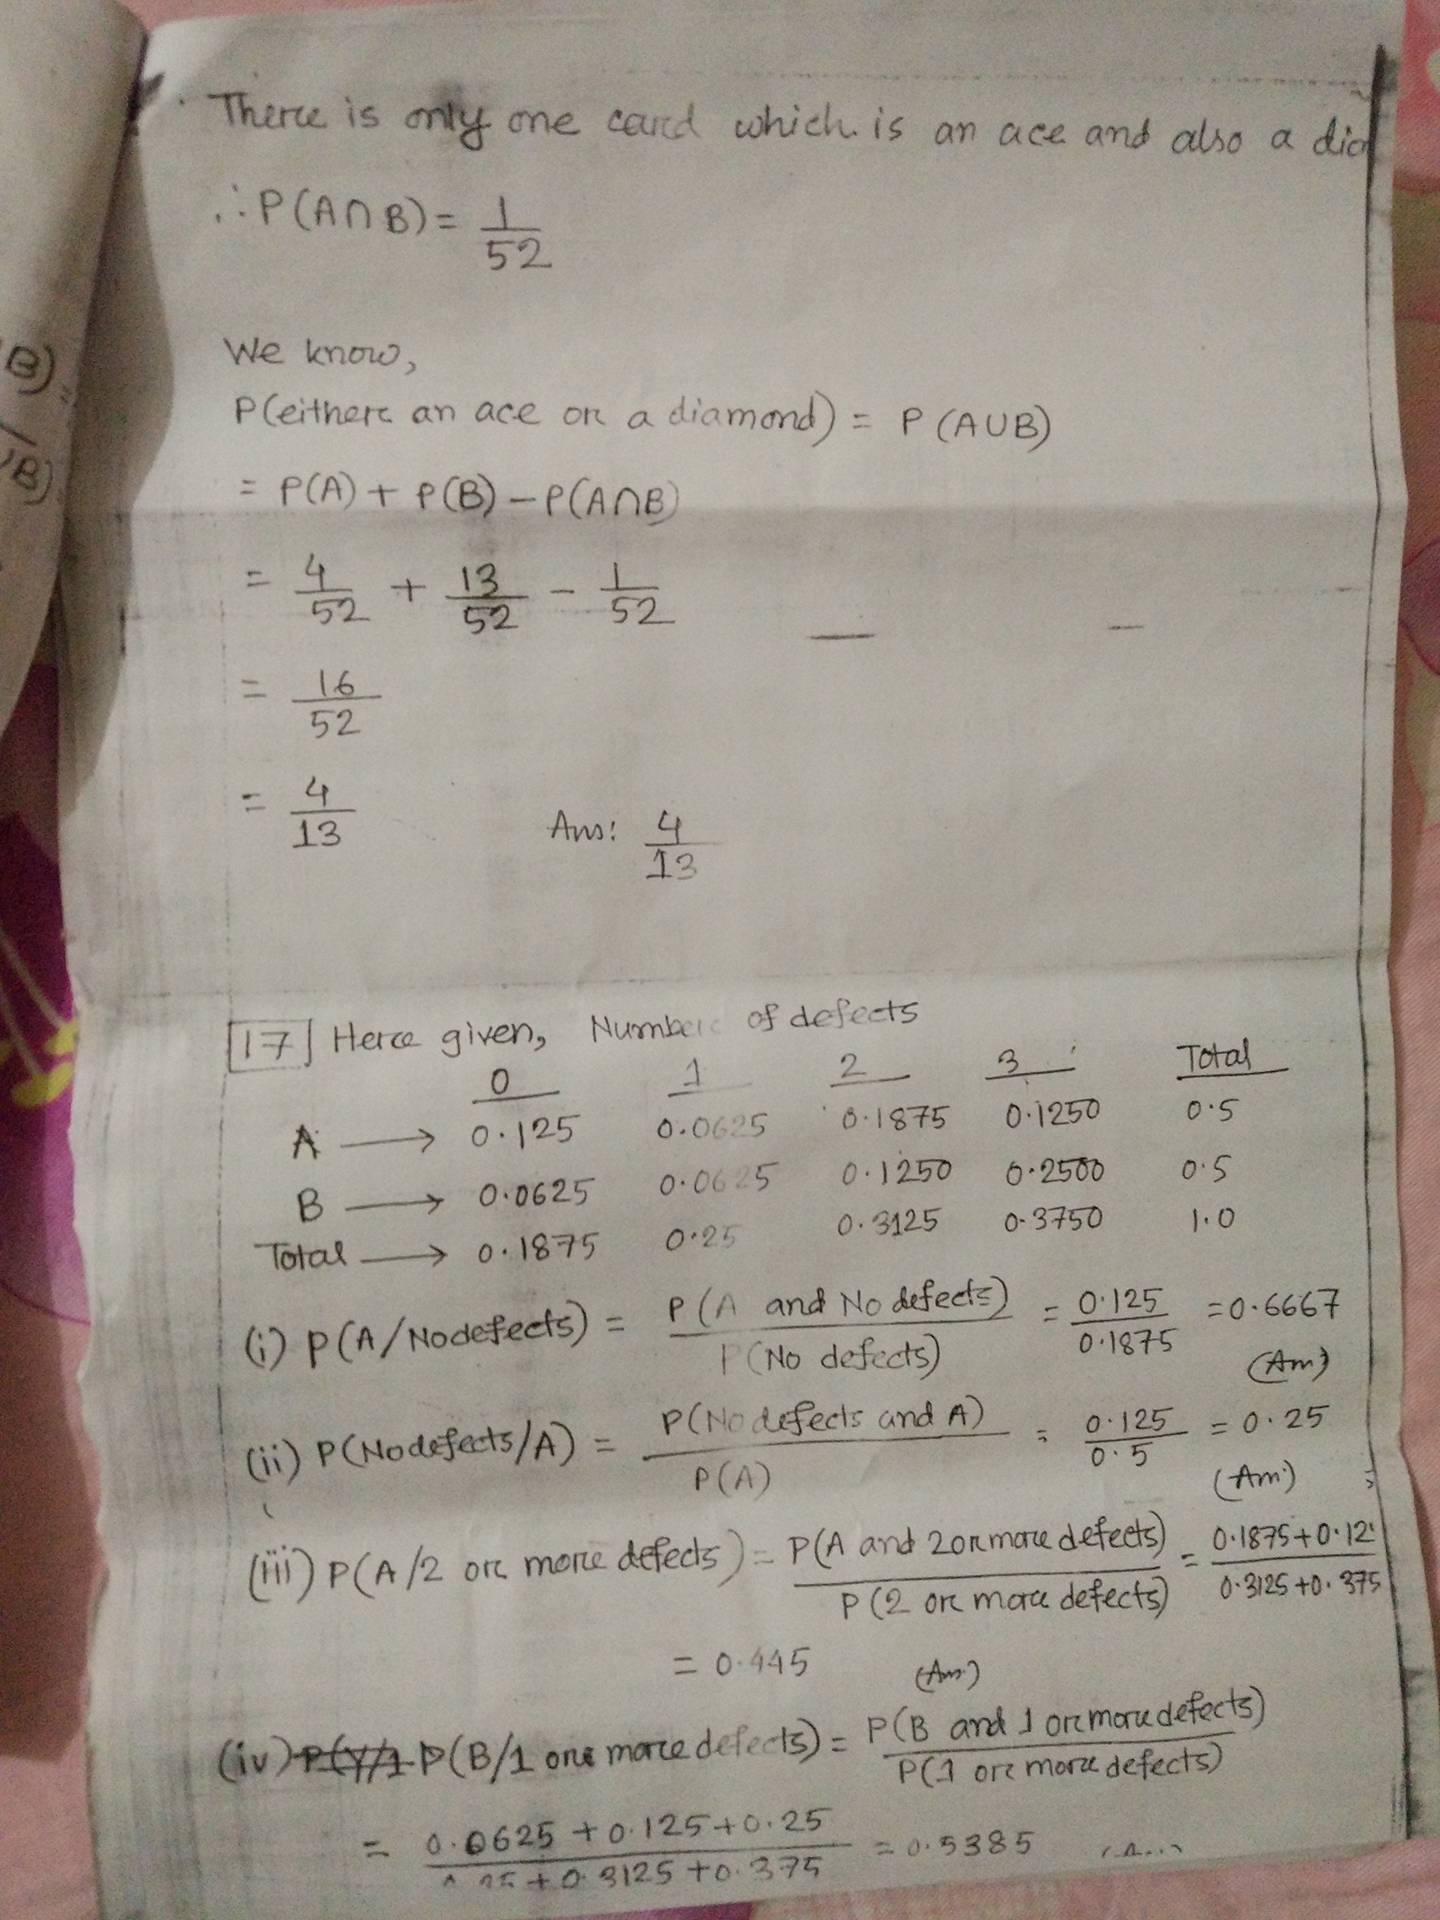 B)
B)
There is only one card which is an ace and also a
∴ P(A∩B) = 1/52
We know,
P(either an ace or a diamond) = P(A∪B)
= P(A) + P(B) − P(A∩B)
= 4/52 + 13/52 − 1/52
= 16/52
= 4/13 Ans: 4/13
17 Here given, Number of defects
0 1 2 3 Total
A → 0.125 0.0625 0.1875 0.1250 0.5
B → 0.0625 0.0625 0.1250 0.2500 0.5
Total → 0.1875 0.25 0.3125 0.3750 1.0
(i) P(A/No defects) = P(A and No defects)/P(No defects) = 0.125/0.1875 = 0.6667
(Am)
(ii) P(No defects/A) = P(No defects and A)/P(A) = 0.125/0.5 = 0.25
(Am)
(iii) P(A/2 or more defects) = P(A and 2 or more defects)/P(2 or more defects) = 0.1875+0.12/0.3125+0.375
= 0.445 (Am)
(iv) P(B/1 or more defects) = P(B and 1 or more defects)/P(1 or more defects)
= 0.0625 + 0.125 + 0.25/0.25 + 0.3125 + 0.375 = 0.5385